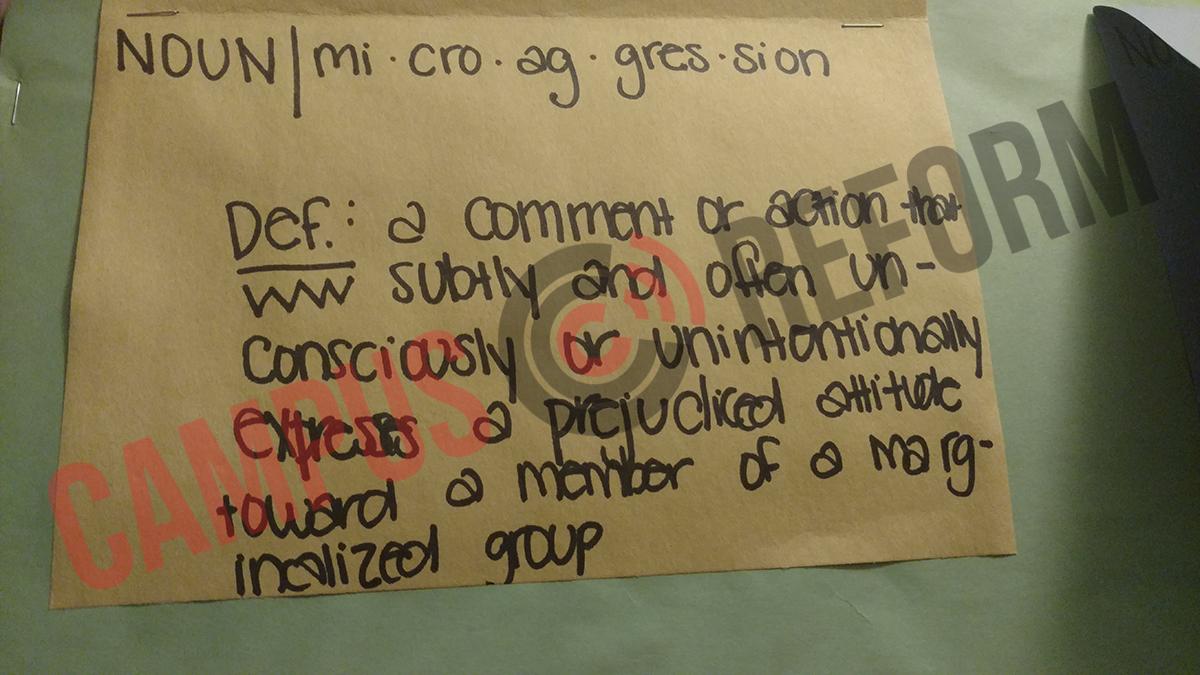 NOUN | mi · cro · ag · gres · sion
Def.: a comment or action that
subtly and often un-
consciously or unintentionally
expresses a prejudiced attitude
toward a member of a marg-
inalized group
CAMPUS REFORM
NO